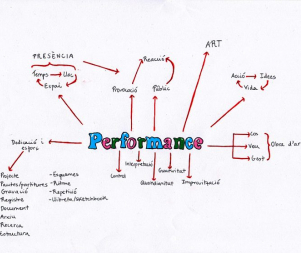 ART
PRESÈNCIA
Reacció
Temps → Lloc
Espai
Provocació
Públic
Acció → Idees
Vida
Performance
Dedicació i
esforç
Cos
Veu
Gest
Obra d'art
Interpretació
Gratuïtat
Límits
Quotidianitat
Improvització
Projecte
Pautes/partitures
Gravació
Registre
Document
Arxiu
Recerca
Estructura
-Esquemes
-Ritme
-Repetició
-Llibreta/sketchbook